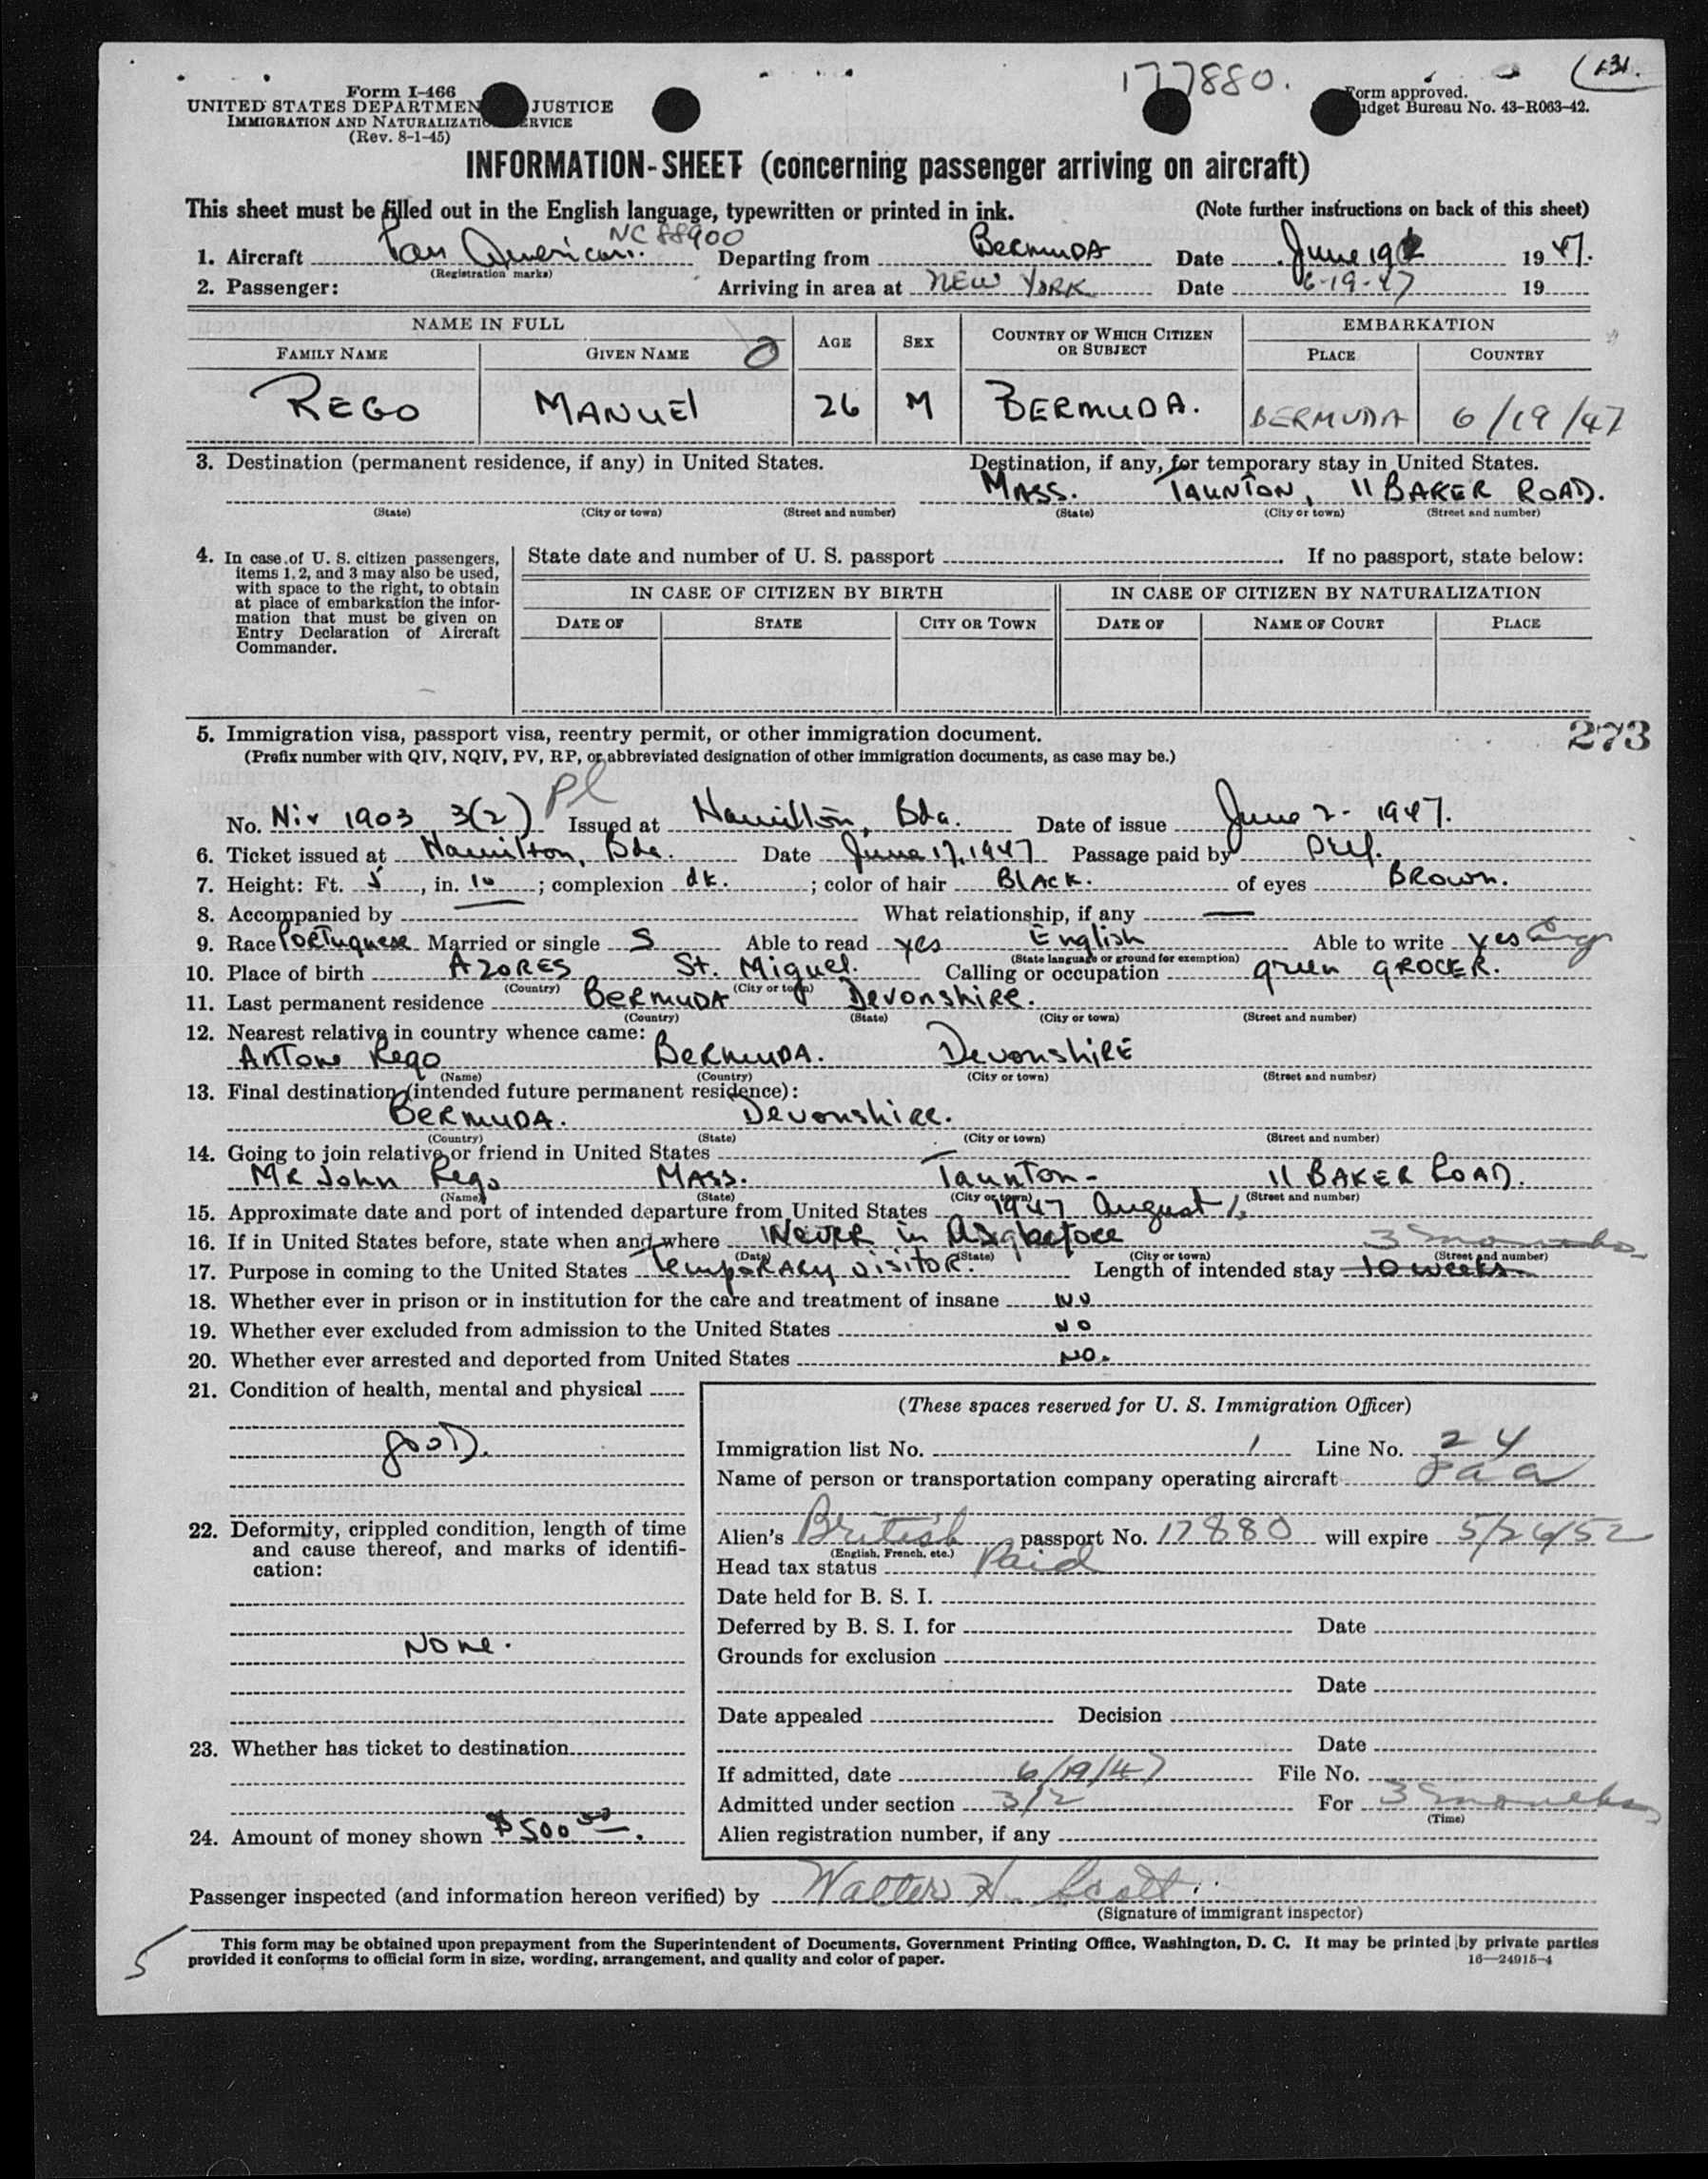 177880.
(131.
Form I-466
UNITED STATES DEPARTMEN JUSTICE
IMMIGRATION AND NATURALIZATIO RVICE
(Rev. 8-1-45)
Form approved.
udget Bureau No. 43-R063-42.
INFORMATION-SHEET (concerning passenger arriving on aircraft)
This sheet must be filled out in the English language, typewritten or printed in ink. (Note further instructions on back of this sheet)
NC 88900
1. Aircraft Pan American. Departing from BERMUDA Date June 19 1947.
(Registration marks)
2. Passenger: Arriving in area at NEW YORK Date 6-19-47 19
NAME IN FULL AGE SEX COUNTRY OF WHICH CITIZEN OR SUBJECT EMBARKATION
FAMILY NAME GIVEN NAME PLACE COUNTRY
REGO MANUEL 26 M BERMUDA. BERMUDA 6/19/47
3. Destination (permanent residence, if any) in United States. Destination, if any, for temporary stay in United States.
MASS. TAUNTON, 11 BAKER ROAD.
(State) (City or town) (Street and number) (State) (City or town) (Street and number)
4. In case of U. S. citizen passengers, items 1, 2, and 3 may also be used, with space to the right, to obtain at place of embarkation the information that must be given on Entry Declaration of Aircraft Commander.
State date and number of U. S. passport If no passport, state below:
IN CASE OF CITIZEN BY BIRTH IN CASE OF CITIZEN BY NATURALIZATION
DATE OF STATE CITY OR TOWN DATE OF NAME OF COURT PLACE
5. Immigration visa, passport visa, reentry permit, or other immigration document. 273
(Prefix number with QIV, NQIV, PV, RP, or abbreviated designation of other immigration documents, as case may be.)
Pl
No. Niv 1903 3(2) Issued at Hamilton, Bda. Date of issue June 2 - 1947.
6. Ticket issued at Hamilton, Bda. Date June 17, 1947 Passage paid by self.
7. Height: Ft. 5, in. 10; complexion dk.; color of hair BLACK. of eyes BROWN.
8. Accompanied by — What relationship, if any —
9. Race Portuguese Married or single S Able to read yes English Able to write yes Eng
(State language or ground for exemption)
10. Place of birth AZORES St. Miguel. Calling or occupation green GROCER.
(Country) (City or town)
11. Last permanent residence BERMUDA Devonshire.
(Country) (State) (City or town) (Street and number)
12. Nearest relative in country whence came:
Antone Rego BERMUDA. DEVONSHIRE
(Name) (Country) (City or town) (Street and number)
13. Final destination (intended future permanent residence):
BERMUDA. Devonshire.
(Country) (State) (City or town) (Street and number)
14. Going to join relative or friend in United States
MR John Rego MASS. Taunton - 11 BAKER ROAD.
(Name) (State) (City or town) (Street and number)
15. Approximate date and port of intended departure from United States 1947 August
16. If in United States before, state when and where Never in before 3 months
(Date) (State) (City or town) (Street and number)
17. Purpose in coming to the United States temporary visitor. Length of intended stay 10 weeks
18. Whether ever in prison or in institution for the care and treatment of insane NO
19. Whether ever excluded from admission to the United States NO
20. Whether ever arrested and deported from United States NO.
21. Condition of health, mental and physical
good.
22. Deformity, crippled condition, length of time and cause thereof, and marks of identification:
None.
23. Whether has ticket to destination
24. Amount of money shown $500
(These spaces reserved for U. S. Immigration Officer)
Immigration list No. 1 Line No. 24
Name of person or transportation company operating aircraft Paa
Alien's British passport No. 17880 will expire 5/26/52
(English, French, etc.)
Head tax status Paid
Date held for B. S. I.
Deferred by B. S. I. for Date
Grounds for exclusion
Date
Date appealed Decision
Date
If admitted, date 6/19/47 File No.
Admitted under section 3/2 For 3 months
(Time)
Alien registration number, if any
Passenger inspected (and information hereon verified) by Walter H. Scott
(Signature of immigrant inspector)
5
This form may be obtained upon prepayment from the Superintendent of Documents, Government Printing Office, Washington, D. C. It may be printed by private parties
provided it conforms to official form in size, wording, arrangement, and quality and color of paper. 16—24915-4